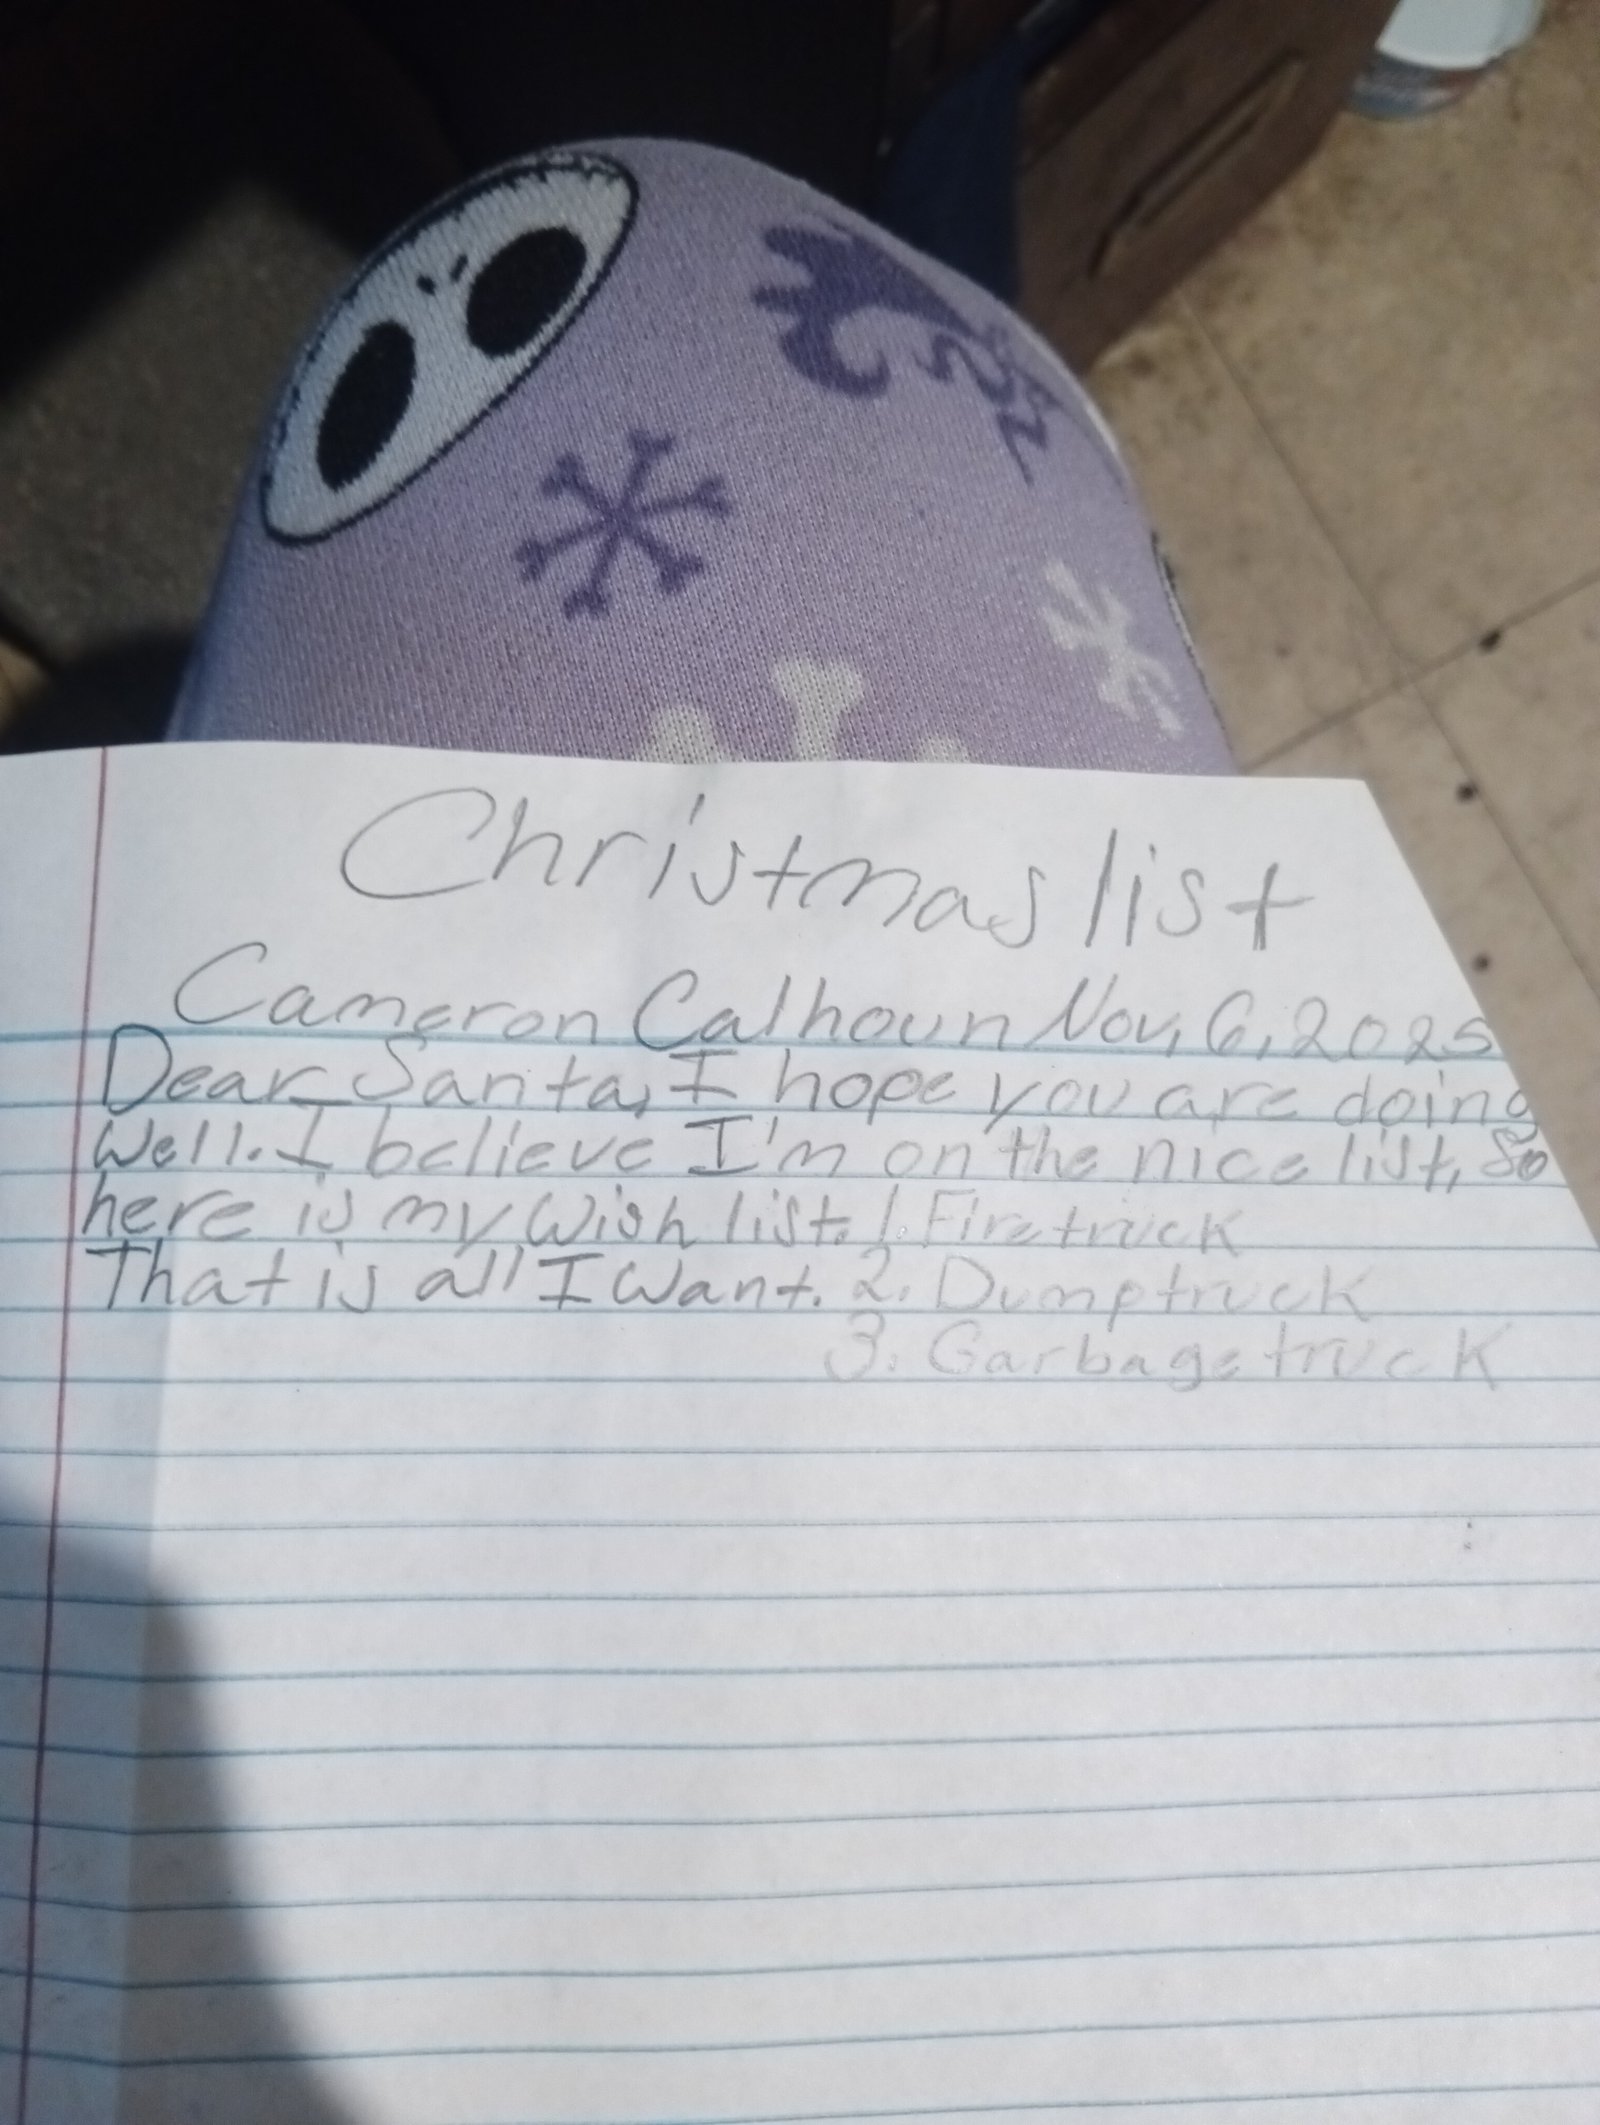 Christmas list
Cameron Calhoun Nov, 6, 2025
Dear Santa, I hope you are doing
Well. I believe I'm on the nice list, So
here is my Wish list. 1. Firetruck
That is all I Want. 2. Dumptruck
3. Garbagetruck